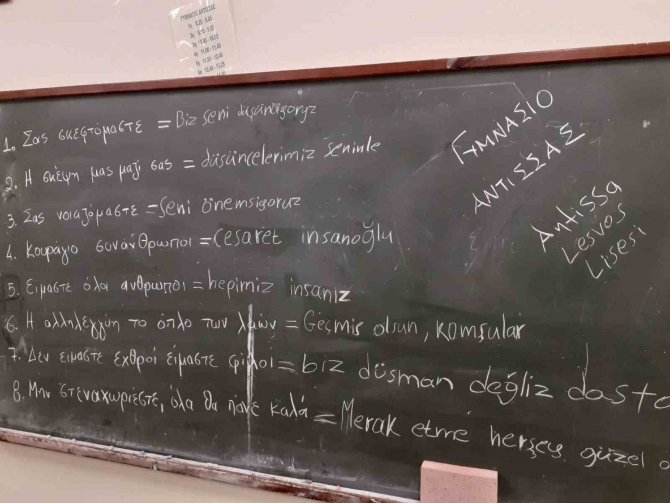 ΓΥΜΝΑΣΙΟ ΑΝΤΙΣΣΑΣ
1. Σας σκεφτόμαστε = Biz seni düşünüyoruz
2. Η σκέψη μας μαζί σας = düşüncelerimiz seninle
3. Σας νοιαζόμαστε = seni önemsiyoruz
4. Κουράγιο συνάνθρωποι = cesaret insanoğlu
5. Ειμαστε όλα ανθρωποι = hepimiz insanız
6. Η αλληλεγγύη το όπλο των λαών = Geçmiş olsun, komşular
7. Δεν ειμαστε εχθροί είμαστε φίλοι = biz düşman değliz dosta
8. Μην στεναχωριέστε, όλα θα πάνε καλά = Merak etme herşeş güzel o
ΓΥΜΝΑΣΙΟ
ΑΝΤΙΣΣΑΣ
Antissa
Lesvos
Lisesi